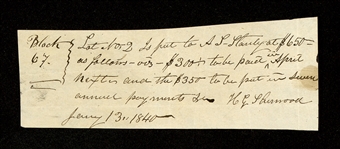 Block 67. Lot No 2 Is put to A S Stanly at $650–
as follows – viz – $300 to be paid in April
next and the $350 to be put in seven
annual payments &c H G Sherwood
Jany 13th 1840